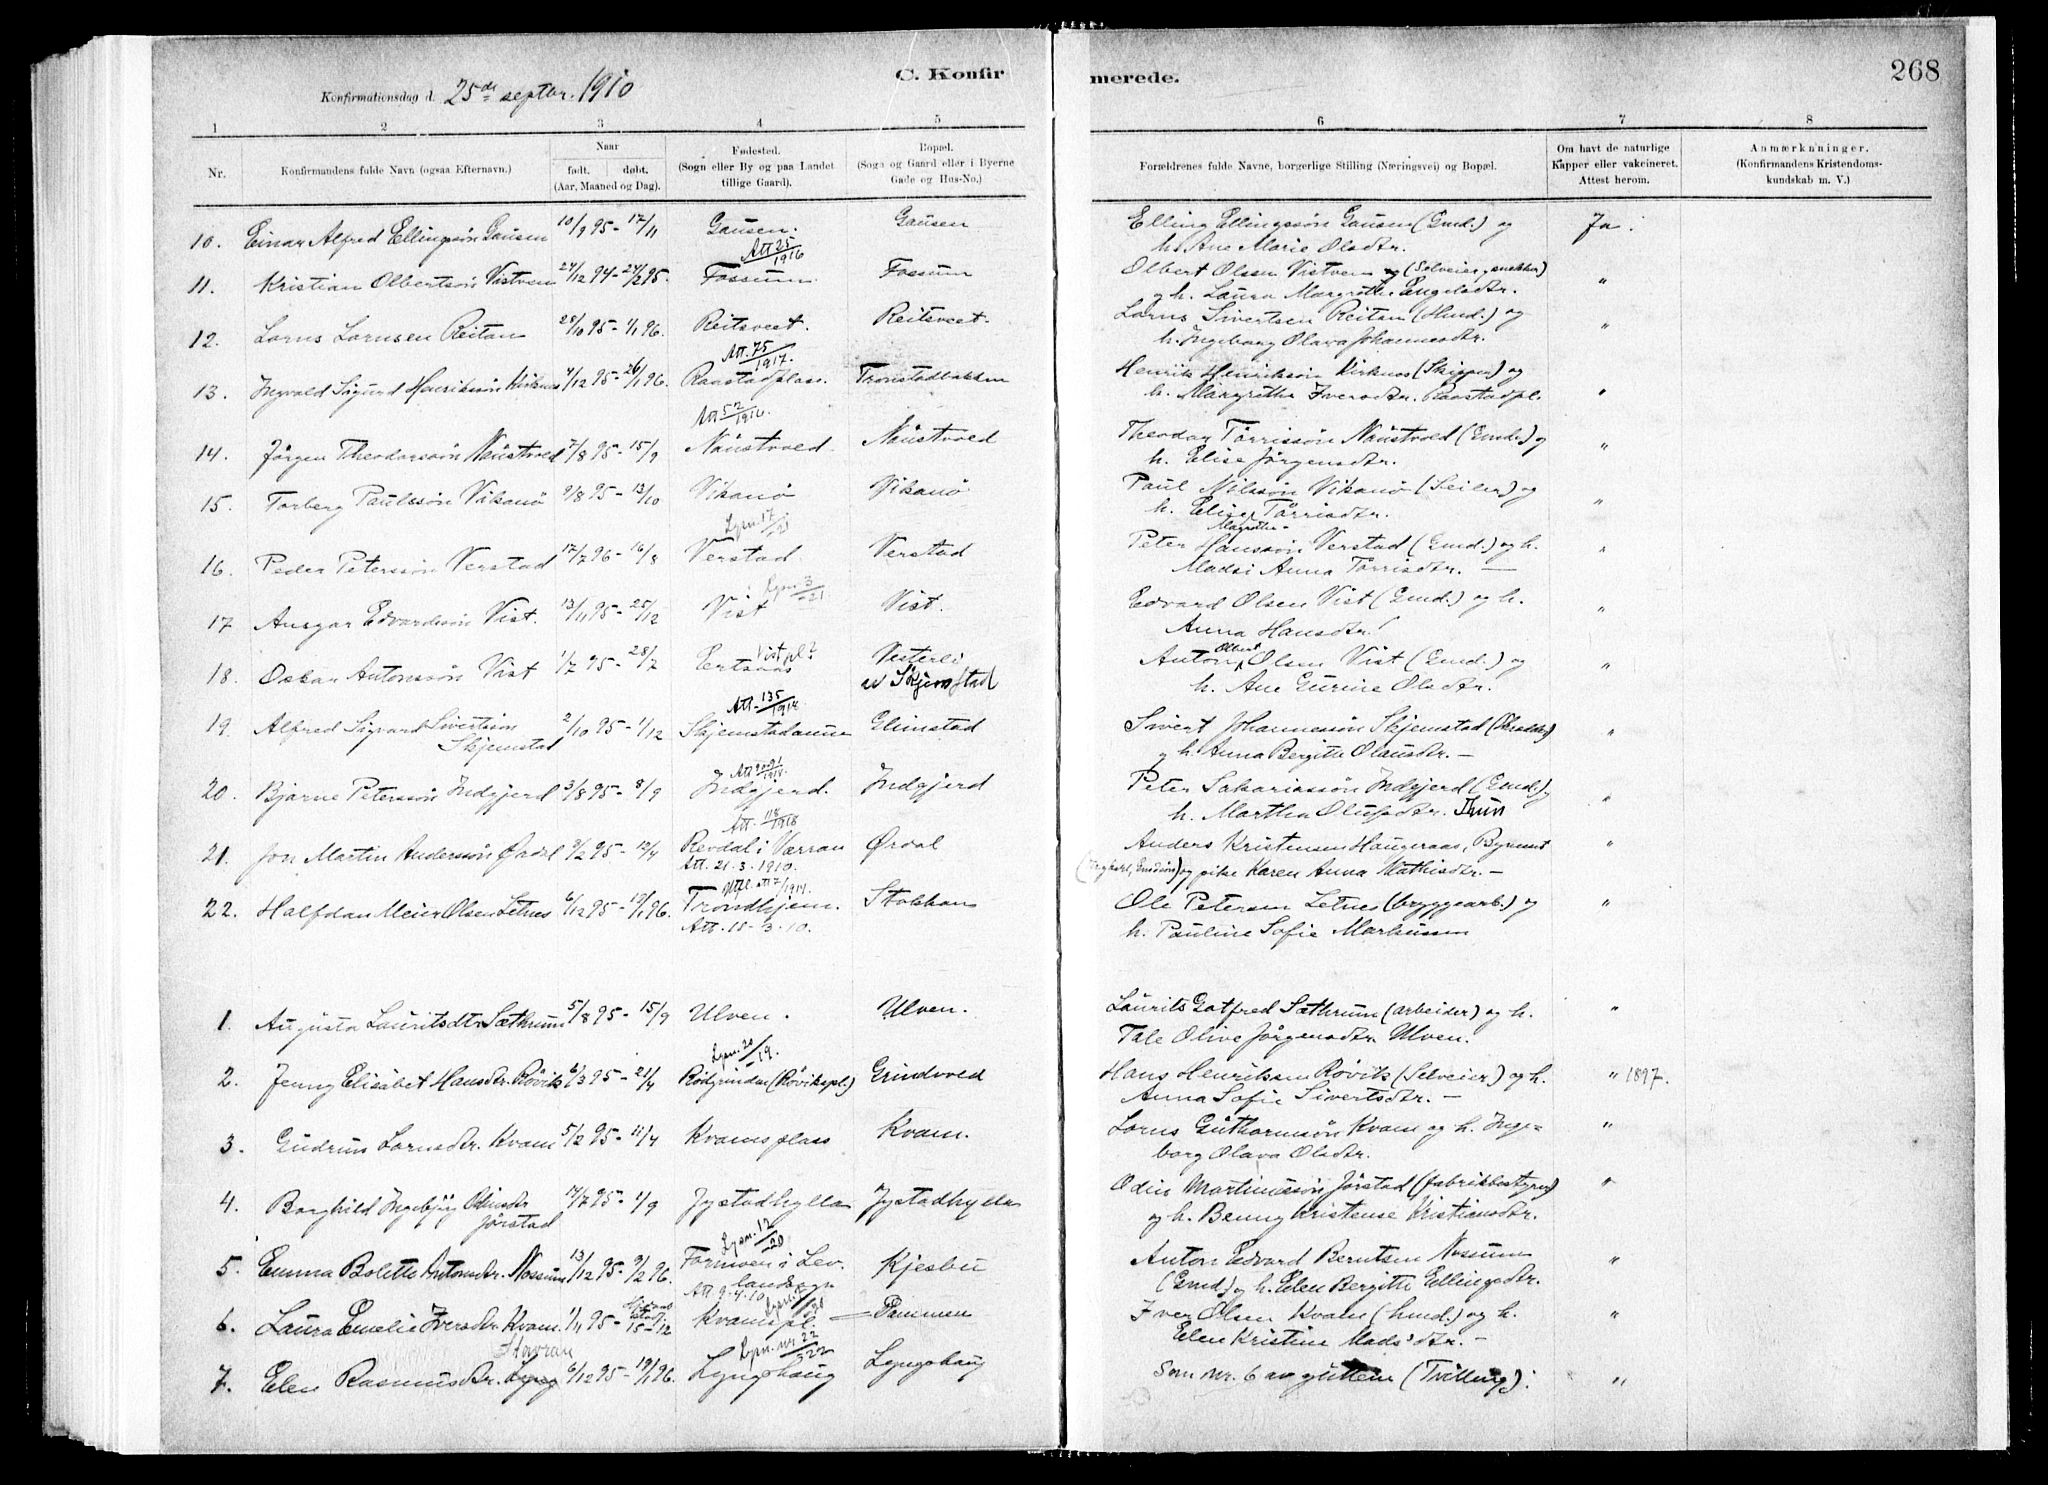 C. Konfirmerede.
268
Konfirmationsdag d. 25de septbr. 1910
1 2 3 4 5 6 7 8
Nr.
Konfirmandens fulde Navn (ogsaa Efternavn).
Naar
født. døbt.
(Aar, Maaned og Dag).
Fødested.
(Sogn eller By og paa Landet
tillige Gaard).
Bopæl.
(Sogn og Gaard eller i Byerne
Gade og Hus-No.)
Forældrenes fulde Navne, borgerlige Stilling (Næringsvei) og Bopæl.
Om havt de naturlige
Kapper eller vakcineret.
Attest herom.
Anmærkninger.
(Konfirmandens Kristendoms-
kundskab m. V.)
10. Einar Alfred Ellingsøn Gausen 10/9 95 - 17/11 Gausen. Gausen Elling Ellingssøn Gausen (Gmd.) og Ja.
h. Ane Marie Olsdtr.
Att 25/1916
11. Kristian Olbertsøn Vistven 24/12 94 - 24/2 95. Fossum Fossum Olbert Olssen Vistven (Selveier, snekker) "
og h. Laura Margrethe Engelsdtr.
12. Lorns Lornsen Reitan 28/10 95 - 1/1 96. Reitsveet. Reitsveet. Lorns Sivertsen Reitan (Hmd.) og "
h. Ingeborg Olava Johannesdtr.
Att. 75/1917.
13. Ingvald Sigurd Henriksøn Kirknes 4/12 95 - 26/1 96. Raastadplass. Tronstadbakken Henrik Henriksøn Kirknes (Skipper) og "
h. Margrethe Iversdtr. Raastadpl.
Att 52/1916.
14. Jørgen Theodorsøn Naustvold 7/8 95 - 15/9 Naustvold. Naustvold Theodor Tørrissøn Naustvold (Gmd.) og "
h. Elise Jørgensdtr.
15. Torberg Paulssøn Vikanø 9/8 95 - 13/10 Vikanø Vikanø Paul Nilssøn Vikanø (Seiler) og "
h. Elise Margrethe Tørrisdtr.
Lysn. 17/21
16. Peder Peterssøn Verstad 17/7 96 - 16/8 Verstad Verstad Peter Hanssøn Verstad (Gmd.) og h. "
Madsi Anna Tørrisdtr. —
Lysn. 3/21
17 Ansgar Edvardsøn Vist. 13/11 95 - 25/12 Vist Vist. Edvard Olsen Vist (Gmd.) og h. "
Anna Hansdtr.
18. Oskar Antonssøn Vist 1/7 95 - 28/7 Ertsaas Vistpl? Vesterli av Skjemstad Anton Olbert Olsen Vist (Gmd.) og "
h. Ane Gurine Olsdtr.
Att. 135/1918
19. Alfred Sigvard Sivertsøn Skjemstad 2/10 95 - 1/12 Skjemstadaunn Glimstad Sivert Johannessøn Skjemstad "
og h. Anna Bergitte Olausdtr. —
20. Bjarne Peterssøn Indgjerd 3/8 95 - 8/9 Indgjerd. Indgjerd Peter Sakariassøn Indgjerd (Gmd.) og "
h. Martha Olufsdtr.
Att. 118/1918
21. Jon Martin Anderssøn Ørdal 9/2 95 - 12/4 Revdal i Værran Ørdal Anders Kristensen Haugeraas, "
Att. 21-3-1910.
og pike Karen Anna Mathisdtr. —
22. Halfdan Meier Olsen Letnes 6/12 95 - 19/1 96. Trondhjem. Stokkan Ole Petersen Letnes (bryggearb.) og "
Att. 18-3-10.
h. Pauline Sofie Markussen
1. Augusta Lauritsdtr Sæthrum 5/8 95 - 15/9 Ulven. Ulven. Laurits Gotfred Sæthrum (arbeider) og h. "
Tale Olive Jørgensdtr. Ulven.
Lysn. 20/19.
2. Jenny Elisabet Hansdtr. Røvik 6/3 95 - 21/4 Rødgrinden (Røvikspl.) Grindvold Hans Henriksen Røvik (Selveier) og h. " 1897.
Anna Sofie Sivertsdtr. —
3. Gudrun Lornsdtr. Kvam 5/2 95 - 11/4 Kvamsplass Kvam. Lorns Guthormsøn Kvam og h. Inge- "
borg Olava Olsdtr.
4. Borghild Ingebjørg Odinsdtr Jørstad 14/7 95 - 1/9 Jystadhylla Jystadhylla Odin Martinussøn Jørstad (fabrikbestyrer) "
og h. Benny Kristense Kristiansdtr.
Lysn. 12/20
5. Emma Bolette Antonsdtr. Mossum 13/12 95 - 9/2 96. Formoen i Lev. landsogn Kjesbu Anton Edvard Berntsen Mossum "
Att. 9-4-10
(Gmd.) og h. Elen Bergitte Ellingsdtr.
6. Laura Emelie Iversdtr. Kvam 1/11 95 - 15-12 Kvamspl. Dammen Iver Olsen Kvam (hmd.) og h. "
Elen Kristine Mads'dtr. —
Lysn. nr. 22/22
7. Elen Rasmusdtr. Lyng 6/12 95 - 19/1 96. Lyngshaug Lyngshaug Som nr. 6 av guttene (Tvilling): "